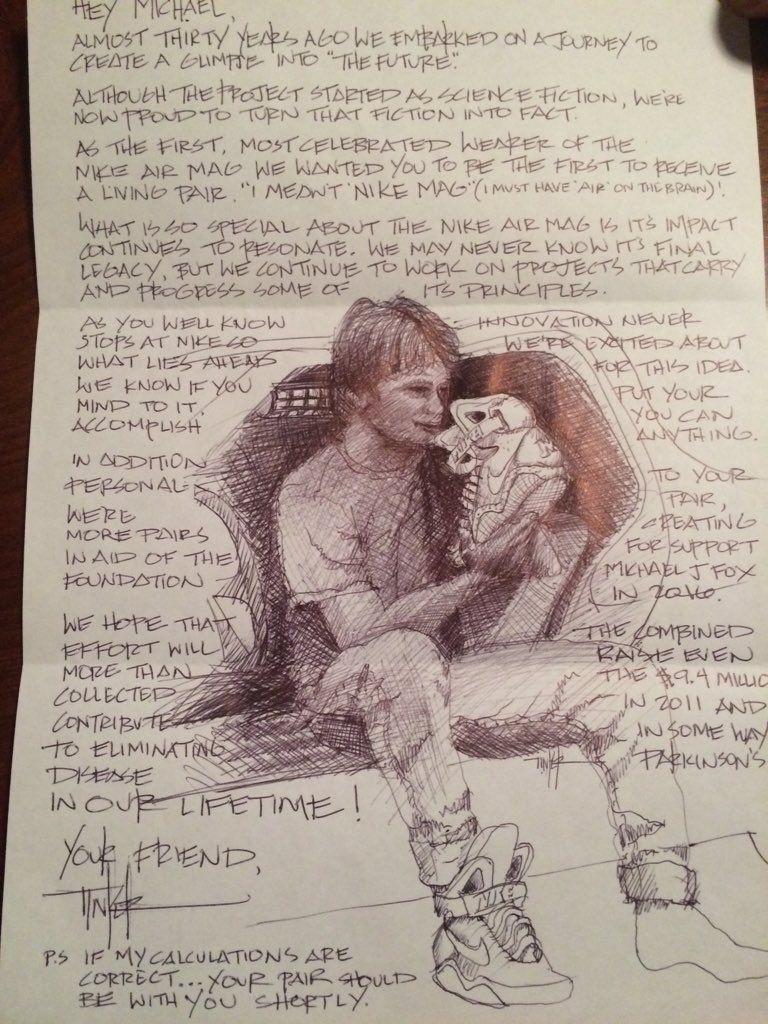 HEY MICHAEL,
ALMOST THIRTY YEARS AGO WE EMBARKED ON A JOURNEY TO
CREATE A GLIMPSE INTO "THE FUTURE".
ALTHOUGH THE PROJECT STARTED AS SCIENCE FICTION, WE'RE
NOW PROUD TO TURN THAT FICTION INTO FACT.
AS THE FIRST, MOST CELEBRATED WEARER OF THE
NIKE AIR MAG WE WANTED YOU TO BE THE FIRST TO RECEIVE
A LIVING PAIR. "I MEANT 'NIKE MAG'" (I MUST HAVE 'AIR' ON THE BRAIN)!
WHAT IS SO SPECIAL ABOUT THE NIKE AIR MAG IS IT'S IMPACT
CONTINUES TO RESONATE. WE MAY NEVER KNOW IT'S FINAL
LEGACY, BUT WE CONTINUE TO WORK ON PROJECTS THAT CARRY
AND PROGRESS SOME OF ITS PRINCIPLES.
AS YOU WELL KNOW INNOVATION NEVER
STOPS AT NIKE SO WE'RE EXCITED ABOUT
WHAT LIES AHEAD FOR THIS IDEA.
WE KNOW IF YOU PUT YOUR
MIND TO IT, YOU CAN
ACCOMPLISH ANYTHING.
IN ADDITION TO YOUR
PERSONAL PAIR,
WE'RE CREATING
MORE PAIRS FOR SUPPORT
IN AID OF THE MICHAEL J FOX
FOUNDATION IN 2016.
WE HOPE THAT THE COMBINED
EFFORT WILL RAISE EVEN
MORE THAN THE $9.4 MILLIO
COLLECTED IN 2011 AND
CONTRIBUTE IN SOME WAY
TO ELIMINATING PARKINSON'S
DISEASE
IN OUR LIFETIME!
TINKER
YOUR FRIEND,
TINKER
NIKE
P.S IF MY CALCULATIONS ARE
CORRECT... YOUR PAIR SHOULD
BE WITH YOU SHORTLY.